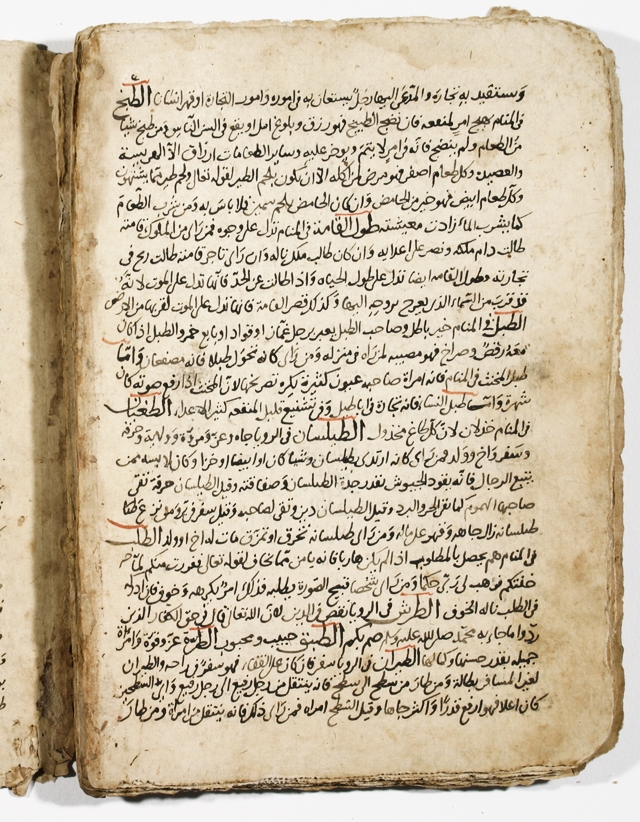 ويستفيد به تجارة والمدعى اليها رجل يستعان به في اموره وامور التجارة او قهر انسان الطبخ
في المنام هيج امر لمنفعه فان نضج الطبيخ فهو رزق وبلوغ امل او يقع في السن الناس ومن طبخ شيا
من الطعام ولم ينضج فانه امر لا يتم ويعرض عليه وساير الطعامات ارزاق الا العريسة
والعصيده وكل طعام اصفر فهو مرض من اكله الا ان يكون بلحم الطير لقوله تعالى ولحم طير مما يشتهون
وكل طعام ابيض فهو خير من الحامض وان كان الحامض بلحم سمين فلا باس به ومن شرب الطعام
كما يشرب الماء زادت معيشته طول القامة في المنام تدل على وجوه فمن راى من الملوك قامته
طالت دام ملكه ونصر على اعدايه وان كان طالب ملك ناله وان راى تاجر قامته طالت ربح في
تجارته وطول القامه ايضا تدل على طول الحياه واذا طالت عن الحد فانها تدل على الموت لانه
قد قرب من السماء الذي يعرج بروحه اليها وكذلك قصر القامة فانها تدل على الموت لقربها من الارض
الطبل في المنام خبر باطل وصاحب الطبل يعبر برجل او قواد او بايع خمر والطبل اذا كان
معه رقص وصراخ فهو مصيبه لمن راه في منزله ومن راى كانه تحول طبلا فانه صفعان واما
طبل المخنث في المنام فانه امراة صاحبه عيوب كثيرة يكره تصريحها لان المخنث اذا رفع صوته كان
شهرة واما طبل النساء فانه تجارة في اباطيل وفي تشنيع قليل المنفعه كثير العدا الطغيان
في المنام خذلان لان كل طاغ مخذول الطيلسان في الرويا جاه وعز ومروة وولاية وحرفه
وسفر واخ وولد فمن راى كانه ارتدى بطيلسان وشيا كان او ابيضا او خزا وكان لابسه ممن
يتبع الرجال فانه يقود الجيوش بقدر جدة الطيلسان وصفاقته وقيل الطيلسان حرفة تقي
صاحبها الهموم كما تقي الحر والبرد وقيل الطيلسان دين وتقى لصاحبه وقيل سفر في بر
طيلسانه زال جاهه وقهر على ماله ومن راى طيلسانه تخرق او تمزق مات له اخ او ولد الطلب
في المنام هم يحصل بالمطلوب اذا لم يكن هاربا فانه يامن مما يخاف لقوله تعالى ففررت منكم لما
خفتكم فوهب لي ربي حكما ومن راى شخصا قبيح الصورة يطلبه فذلك امر يكرهه وخوف فان ادركه
في الطلب ناله الخوف الطرش في الرويا نقص في الدين لان الله تعالى قال في حق الكفار الذين
ردوا ما جا به محمد صلى الله عليه وسلم صم بكم الطبق حبيب ومحبوب الطرة عز وقوة وامراة
جميله بقدر حسنها وكمالها الطيران في الرويا سفر فان كان على القفا فهو سفر في راحه والطيران
لغير المسافر بطالة ومن طار من سطح الى سطح فانه ينتقل من رجل رفيع الى رجل رفيع واي السطحين
كان اعلا فهو ارفع قدرا واكثر جاها وقيل السطح امراه فمن راى ذلك فانه ينتقل من امراة ومن طار